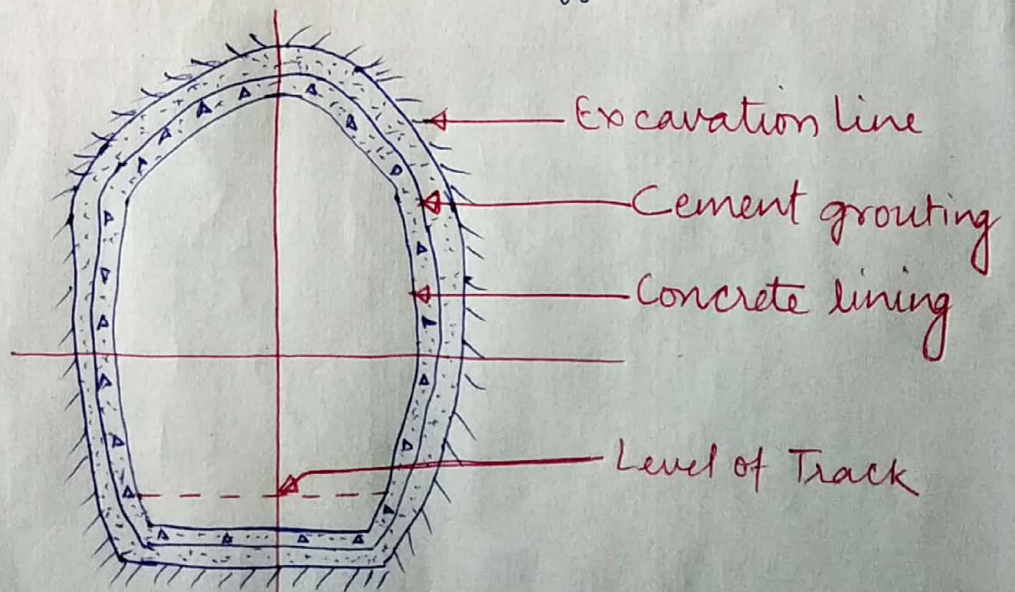 Excavation line
Cement grouting
Concrete lining
Level of Track